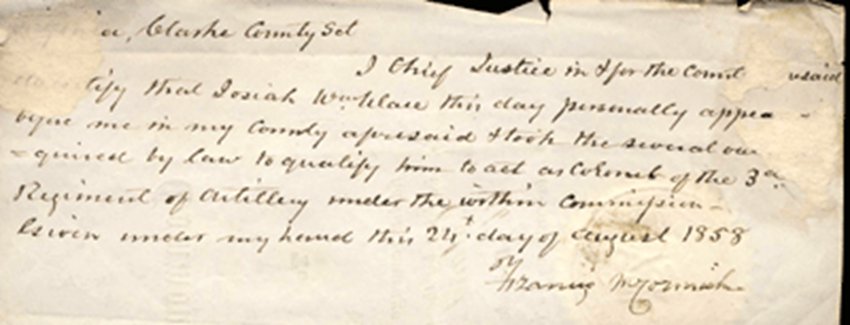 a, Clarke County Sct
I Chief Justice in & for the Count said
tify that Josiah Wm Ware this day personally appea
me in my County aforesaid & took the several oa
quired by law to qualify him to act as Colonel of the 3d
Regiment of Artillery under the within Commission
Given under my hand this 24 day of August 1858
Francis McCormick